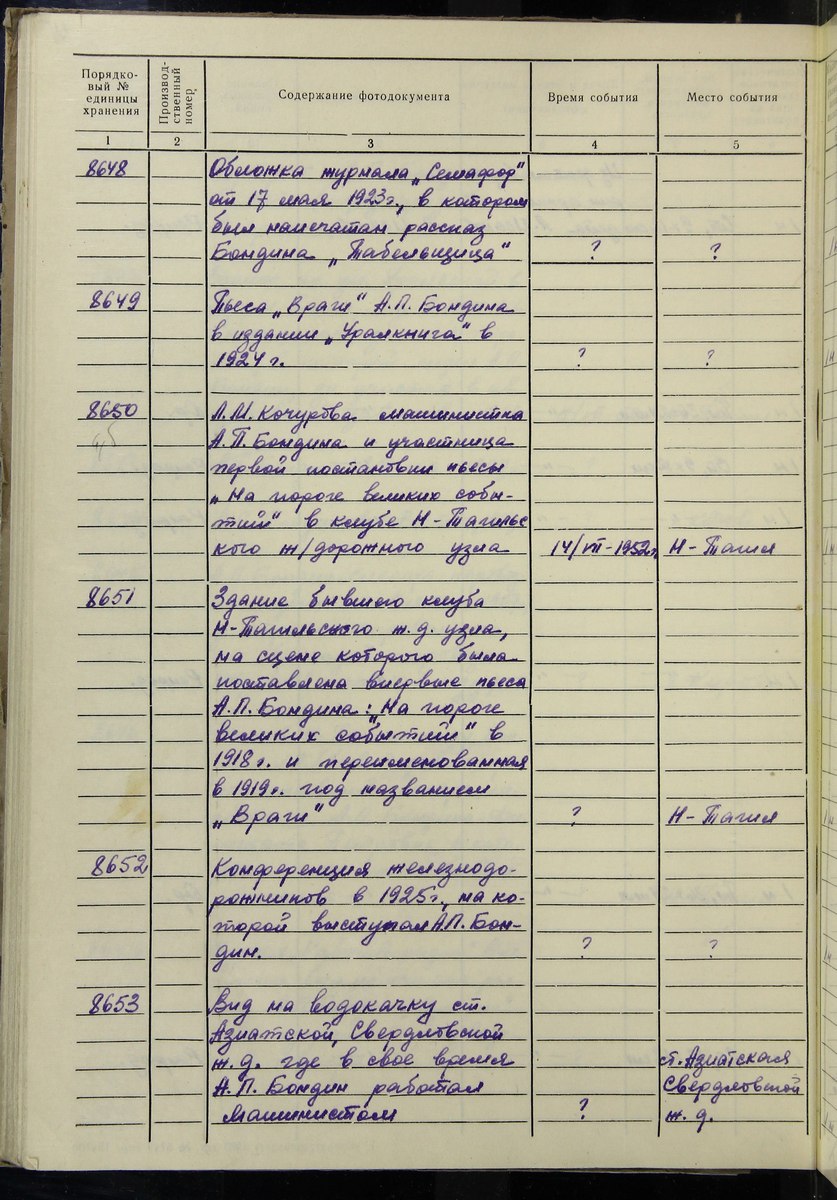 Порядко-
вый №
единицы
хранения
Производ-
ственный
номер
Содержание фотодокумента
Время события
Место события
1
2
3
4
5
8648
Обложка журнала „Семафор"
от 17 мая 1923г., в котором
был напечатан рассказ
Бондина „Табельщица"
?
?
8649
Пьеса „Враги" А.П. Бондина
в издании „Уралкнига" в
1924 г.
?
?
8650
Л.М. Кочурова машинистка
А.П. Бондина и участница
первой постановки пьесы
„На пороге великих собы-
тий" в клубе Н-Тагильс
кого ж/дорожного узла
14/VII-1952г.
Н-Тагил
8651
Здание бывшего клуба
Н-Тагильского ж.д. узла,
на сцене которого была
поставлена впервые пьеса
А.П. Бондина: „На пороге
великих событий" в
1918г. и переименованная
в 1919г. под названием
„Враги"
?
Н-Тагил
8652
Конференция железнодо-
рожников в 1925г., на ко-
торой выступал А.П. Бон-
дин.
?
?
8653
Вид на водокачку ст.
Азиатской, Свердловской
ж.д. где в свое время
А.П. Бондин работал
машинистом
?
ст. Азиатская
Свердловской
ж.д.